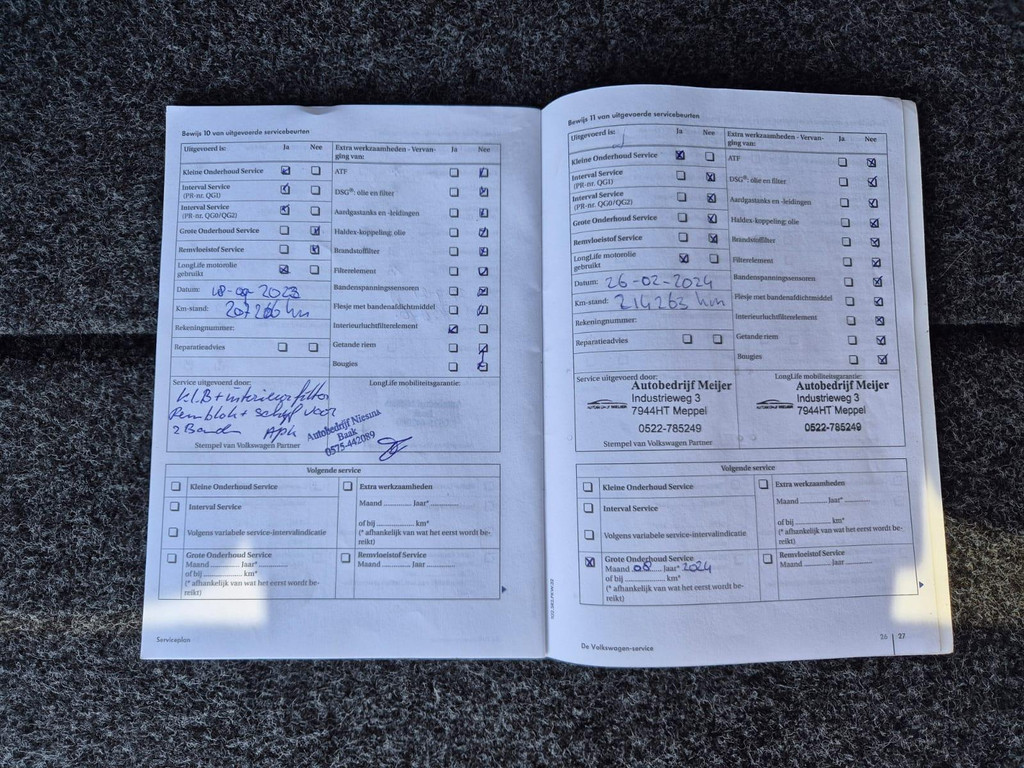 Bewijs 10 van uitgevoerde servicebeurten
Uitgevoerd is: Ja Nee
Kleine Onderhoud Service
Interval Service
(PR-nr. QG1)
Interval Service
(PR-nr. QG0/QG2)
Grote Onderhoud Service
Remvloeistof Service
LongLife motorolie
gebruikt
Datum: -09-2023
Km-stand: 207260 km
Rekeningnummer:
Reparatieadvies
Extra werkzaamheden - Vervan-
ging van: Ja Nee
ATF
DSG®: olie en filter
Aardgastanks en -leidingen
Haldex-koppeling; olie
Brandstoffilter
Filterelement
Bandenspanningssensoren
Flesje met bandenafdichtmiddel
Interieurluchtfilterelement
Getande riem
Bougies
Service uitgevoerd door: LongLife mobiliteitsgarantie:
Kl.B + interieurfilter
Remblok + schijf voor
2 Banden Apk
Autobedrijf Niesink
Baak
0575-442089
Stempel van Volkswagen Partner
Volgende service
Kleine Onderhoud Service
Interval Service
Volgens variabele service-intervalindicatie
Grote Onderhoud Service
Maand ............ Jaar* ............
of bij ............ km*
(* afhankelijk van wat het eerst wordt be-
reikt)
Extra werkzaamheden
Maand ............ Jaar* ............
of bij ............ km*
(* afhankelijk van wat het eerst wordt be-
reikt)
Remvloeistof Service
Maand ............ Jaar ............
Serviceplan
Bewijs 11 van uitgevoerde servicebeurten
Uitgevoerd is: Ja Nee
Kleine Onderhoud Service
Interval Service
(PR-nr. QG1)
Interval Service
(PR-nr. QG0/QG2)
Grote Onderhoud Service
Remvloeistof Service
LongLife motorolie
gebruikt
Datum: 26-02-2024
Km-stand: 214263 km
Rekeningnummer:
Reparatieadvies
Extra werkzaamheden - Vervan-
ging van: Ja Nee
ATF
DSG®: olie en filter
Aardgastanks en -leidingen
Haldex-koppeling; olie
Brandstoffilter
Filterelement
Bandenspanningssensoren
Flesje met bandenafdichtmiddel
Interieurluchtfilterelement
Getande riem
Bougies
Service uitgevoerd door: LongLife mobiliteitsgarantie:
Autobedrijf Meijer
Industrieweg 3
7944HT Meppel
0522-785249
Autobedrijf Meijer
Industrieweg 3
7944HT Meppel
0522-785249
Stempel van Volkswagen Partner
Volgende service
Kleine Onderhoud Service
Interval Service
Volgens variabele service-intervalindicatie
Grote Onderhoud Service
Maand 08 Jaar* 2024
of bij ............ km*
(* afhankelijk van wat het eerst wordt be-
reikt)
Extra werkzaamheden
Maand ............ Jaar* ............
of bij ............ km*
(* afhankelijk van wat het eerst wordt be-
reikt)
Remvloeistof Service
Maand ............ Jaar ............
De Volkswagen-service
26 27